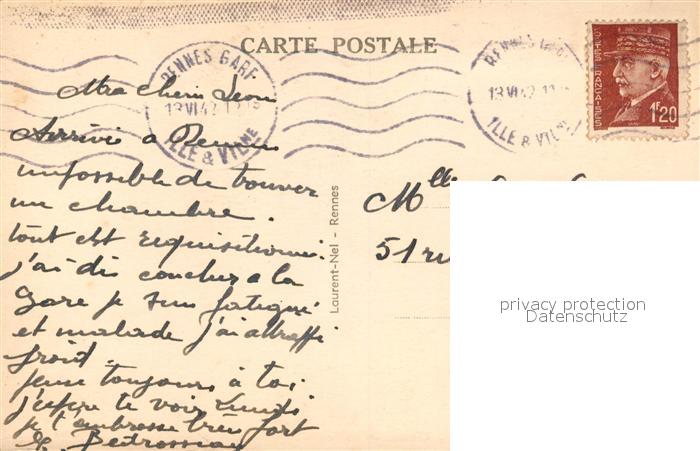 CARTE POSTALE
RENNES GARE
13 VI 42
ILLE & VILNE
RENNES GARE
13 VI 42
ILLE & VILNE
POSTES FRANÇAISES
1F20
Ma cherie
Arrivé a Rennes
impossible de trouver
un chambre.
tout est requisitionné.
j'ai dû coucher a la
gare je suis fatigué
et malade j'ai attrappé
froid.
pense toujours à toi
j'espère te voir Lundi
je t'embrasse très fort
Laurent-Nel - Rennes
Mlle
51 ru
privacy protection
Datenschutz